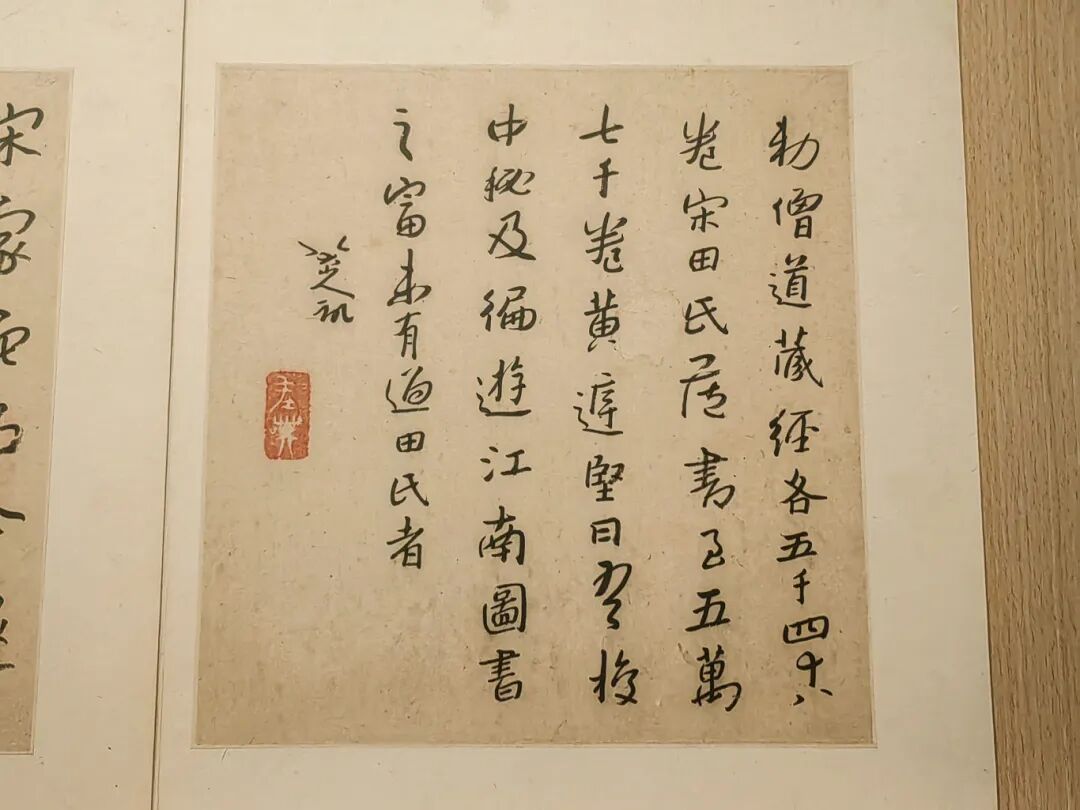 勅僧道藏經各五千四十八
卷宋田氏居書至五萬
七千卷黃庭堅曰校
中秘及徧遊江南圖書
之富未有過田氏者
八大山人記